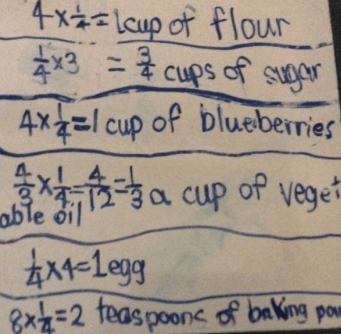 4×1/4=1cup of flour
1/4×3 = 3/4 cups of sugar
4×1/4=1 cup of blueberries
4/3×1/4=4/12=1/3 a cup of veget
able oil
1/4×4=1egg
8×1/4=2 teaspoons of baking pow